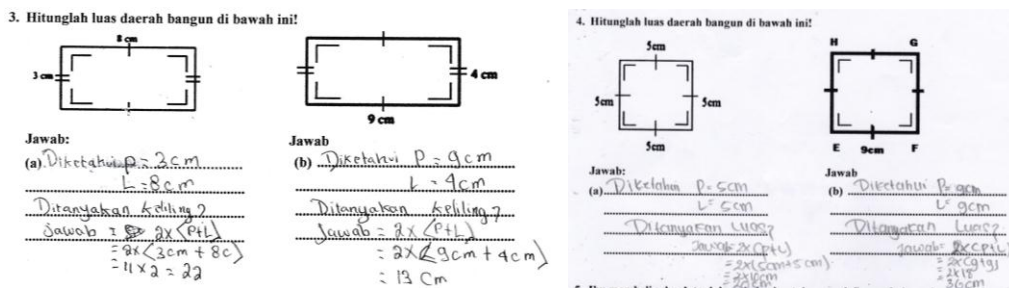 3. Hitunglah luas daerah bangun di bawah ini!
8 cm
3 cm
4 cm
9 cm
Jawab:
(a). Diketahui p = 3cm
L = 8cm
Ditanyakan keliling?
Jawab = 2x(P+L)
= 2x(3cm + 8c)
= 11 x 2 = 22
Jawab
(b) Diketahui P = 9cm
L = 4cm
Ditanyakan keliling?
Jawab = 2x(P+L)
= 2x(9cm + 4cm)
= 13 Cm
4. Hitunglah luas daerah bangun di bawah ini!
5cm
5cm
5cm
5cm
H G
E 9cm F
Jawab:
(a) Diketahui P = 5cm
L = 5cm
Ditanyakan Luas?
Jawab = 2x(p+L)
= 2x(5cm+5cm)
= 2x10cm
Jawab
(b) Diketahui P = 9cm
L = 9cm
Ditanyakan Luas?
Jawab = 2x(P+L)
= 2x(9+9)
= 2x18
36cm